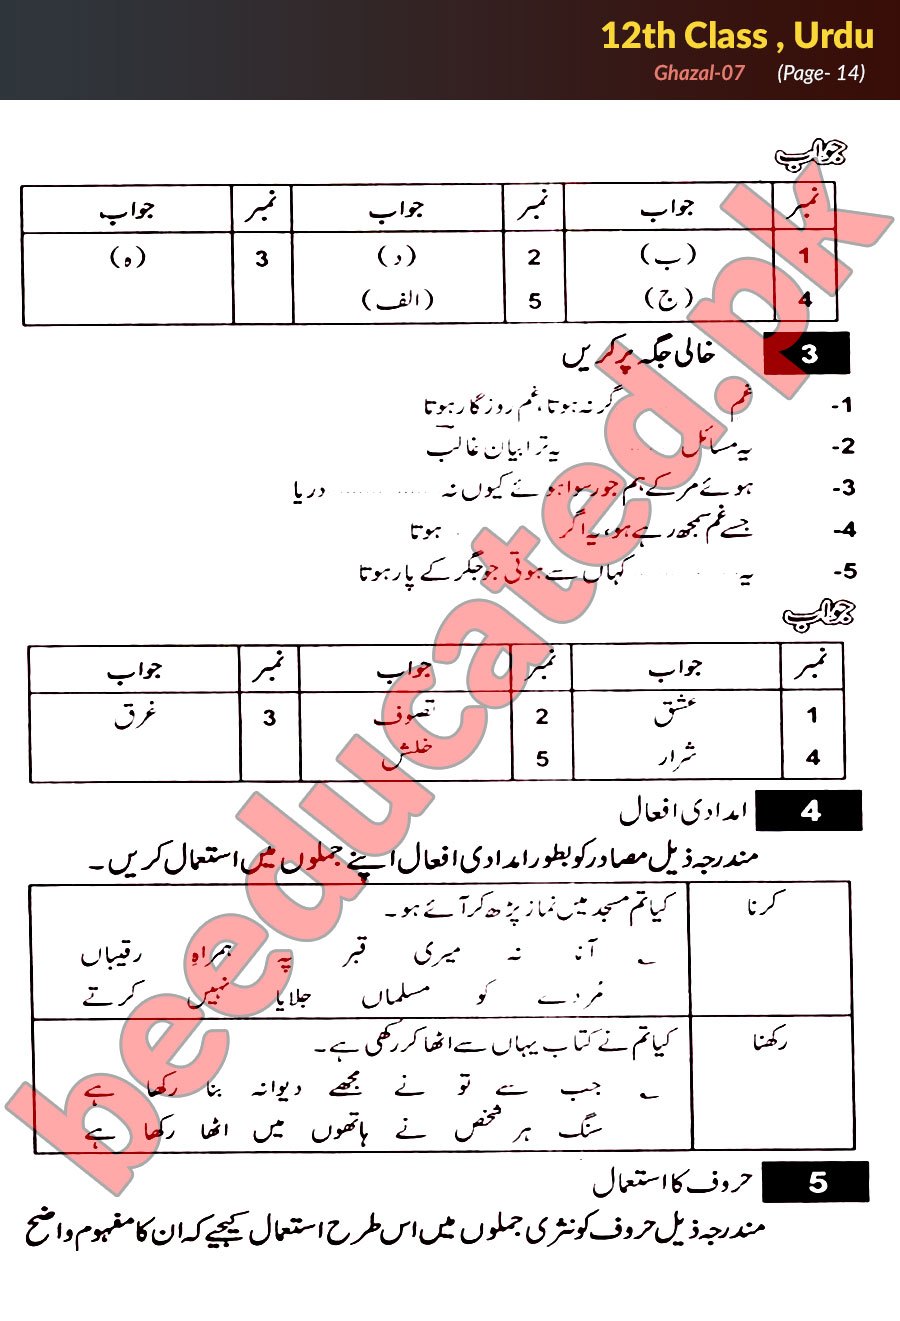 12th Class , Urdu
Ghazal-07 (Page- 14)
جواب
نمبر جواب نمبر جواب نمبر جواب
1 (ب) 2 (د) 3 (ہ)
4 (ج) 5 (الف)
3 خالی جگہ پر کریں
-1 غم ........ گر نہ ہوتا، غم روزگار ہوتا
-2 یہ مسائل ........ یہ ترا بیان غالب
-3 ہوئے مر کے ہم جو رسوا ہوئے کیوں نہ ........ دریا
-4 جسے غم سمجھ رہے ہو، یہ اگر ........ ہوتا
-5 یہ ........ کہاں سے ہوتی جو جگر کے پار ہوتا
جواب
نمبر جواب نمبر جواب نمبر جواب
1 عشق 2 تصوف 3 غرق
4 شرار 5 خلش
4 امدادی افعال
مندرجہ ذیل مصادر کو بطور امدادی افعال اپنے جملوں میں استعمال کریں۔
کرنا کیا تم مسجد میں نماز پڑھ کر آئے ہو۔
؎ آنا نہ میری قبر پہ ہمراہِ رقیباں
مُردے کو مسلماں جلایا نہیں کرتے
رکھنا کیا تم نے کتاب یہاں سے اٹھا کر رکھی ہے۔
؎ جب سے تو نے مجھے دیوانہ بنا رکھا ہے
سنگ ہر شخص نے ہاتھوں میں اٹھا رکھا ہے
5 حروف کا استعمال
مندرجہ ذیل حروف کو نثری جملوں میں اس طرح استعمال کیجیے کہ ان کا مفہوم واضح
beeducated.pk